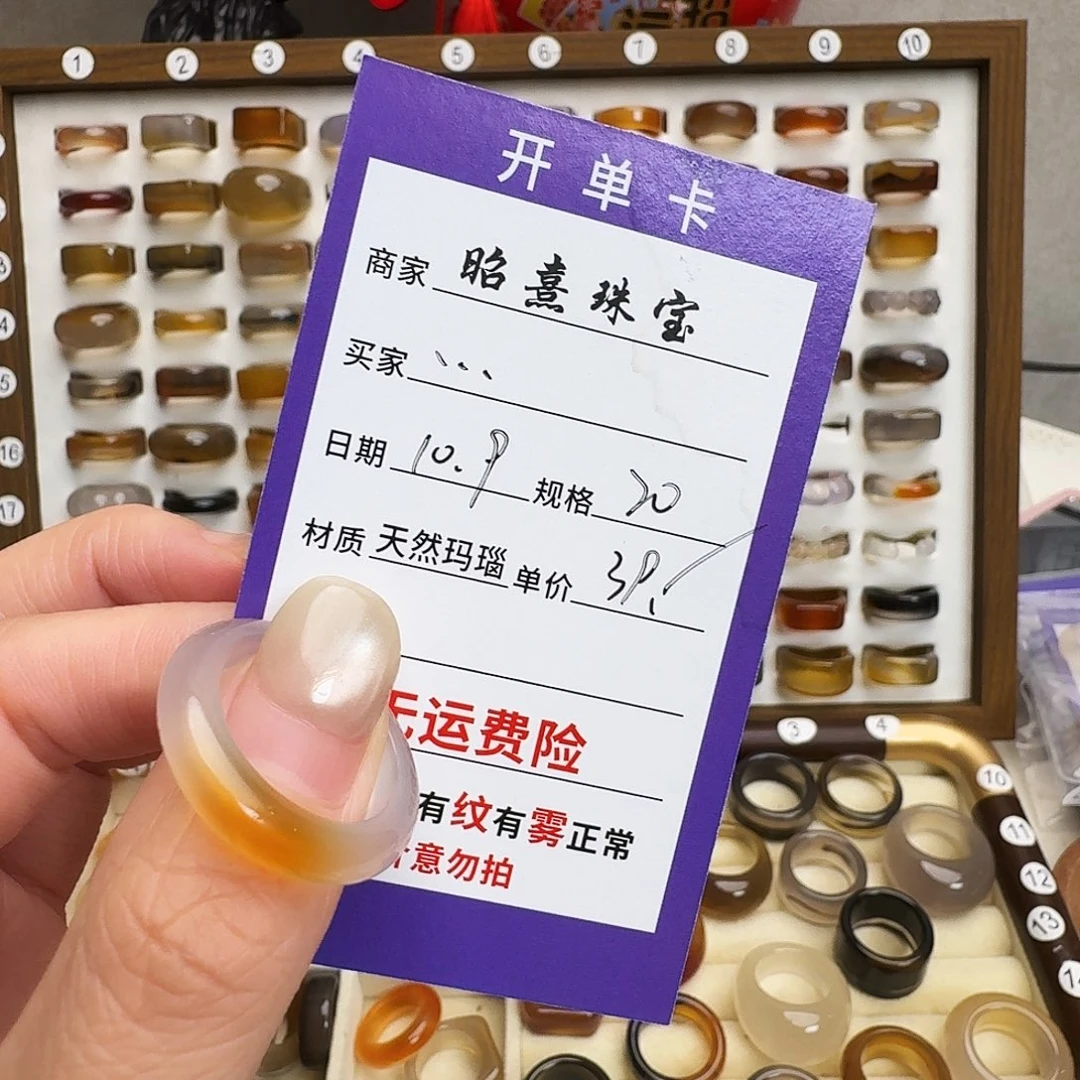 1 2 3 4 5 6 7 8 9 10
开单卡
商家 昭熹珠宝
买家 、、、
日期 10.9 规格 20
材质 天然玛瑙 单价 39.
无运费险
有纹有雾正常
介意勿拍
4
5
16
17
3 4
10
11
12
13
14